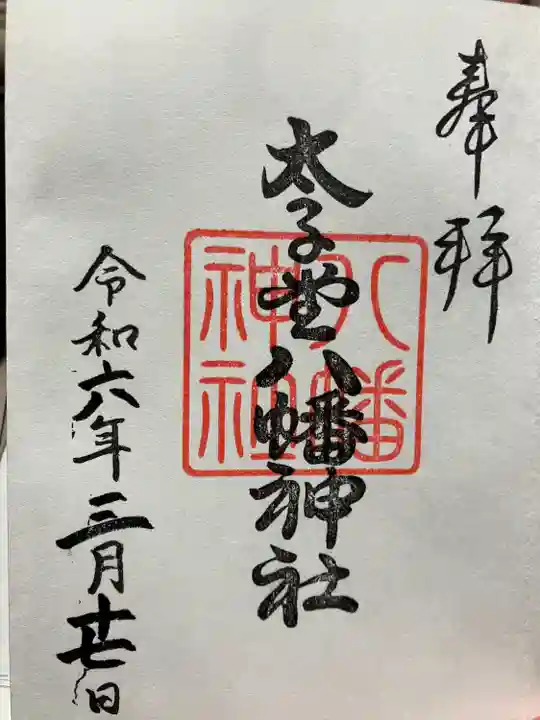 奉拝
太子堂八幡神社
八幡神社
令和六年三月廿七日